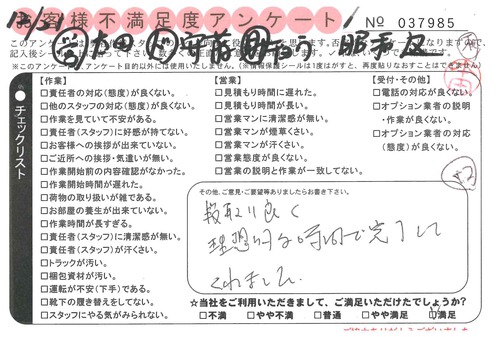 お客様不満足度アンケート
No 037985
※このアンケートは、アンケート目的以外には使用いたしません。(※情報保護シールは1度はがすと、再度貼りなおすことはできません)
チェックリスト
【作業】
□責任者の対応(態度)が良くない。
□他のスタッフの対応(態度)が良くない。
□作業を見ていて不安がある。
□責任者(スタッフ)に好感が持てない。
□お客様への挨拶が出来ていない。
□ご近所への挨拶・気遣いが無い。
□作業開始前の内容確認がなかった。
□作業開始時間が遅れた。
□荷物の取り扱いが雑である。
□お部屋の養生が出来ていない。
□作業時間が長すぎる。
□責任者(スタッフ)に清潔感が無い。
□責任者(スタッフ)が汗くさい。
□トラックが汚い。
□梱包資材が汚い。
□運転が不安(下手)である。
□靴下の履き替えをしてない。
□スタッフにやる気がみられない。
【営業】
□見積もり時間に遅れた。
□見積もり時間が長い。
□営業マンに清潔感が無い。
□営業マンが煙草くさい。
□営業マンが汗くさい。
□営業態度が良くない。
□営業の説明と作業が一致してない。
【受付・その他】
□電話の対応が良くない。
□オプション業者の説明
・作業が良くない。
□オプション業者の対応
(態度)が良くない。
その他、ご意見・ご要望等ありましたらお書き下さい。
段取り良く
理想的な時間で完了して
くれました
☆当社をご利用いただきまして、ご満足いただけたでしょうか?
□不満 □やや不満 □普通 □やや満足 □満足